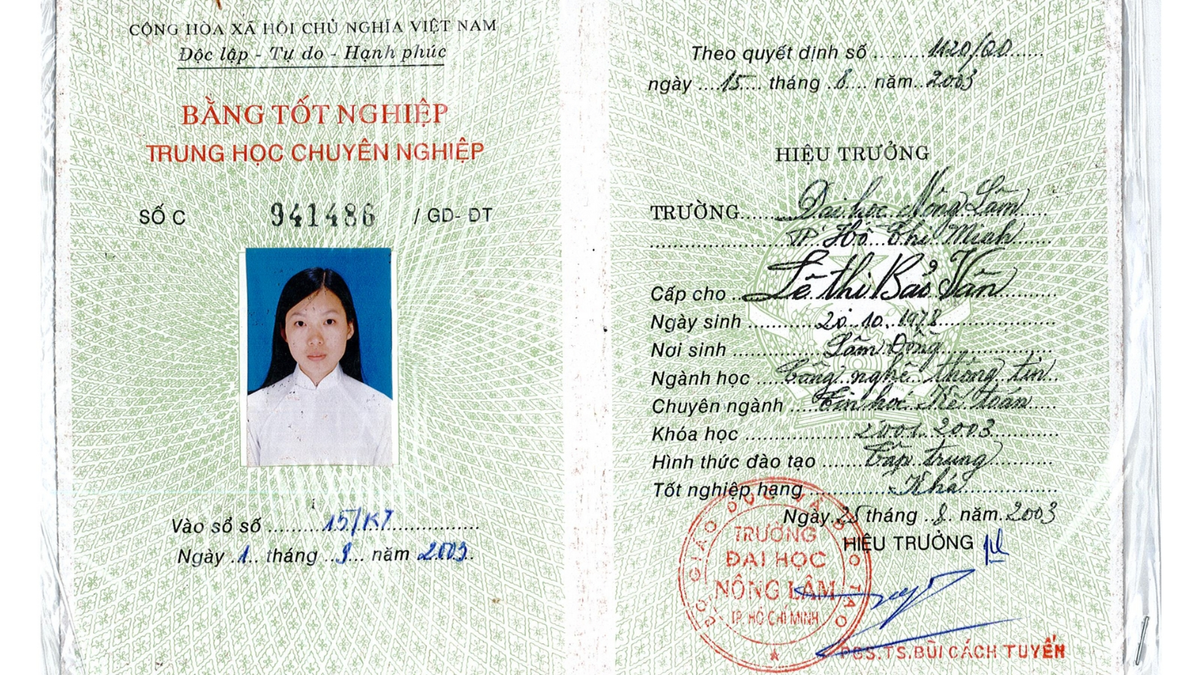 CỘNG HÒA XÃ HỘI CHỦ NGHĨA VIỆT NAM
Độc lập - Tự do - Hạnh phúc
BẰNG TỐT NGHIỆP
TRUNG HỌC CHUYÊN NGHIỆP
SỐ C 941486 / GD- ĐT
Vào sổ số 15/KT
Ngày 1 tháng 9 năm 2003
Theo quyết định số 1120/QĐ
ngày 15 tháng 8 năm 2003
HIỆU TRƯỞNG
TRƯỜNG Đại học Nông Lâm
TP. Hồ Chí Minh
Cấp cho Lê Thị Bảo Vân
Ngày sinh 20.10.1978
Nơi sinh Lâm Đồng
Ngành học Công nghệ thông tin
Chuyên ngành Tin học Kế toán
Khóa học 2001.2003
Hình thức đào tạo Tập trung
Tốt nghiệp hạng Khá
Ngày 25 tháng 8 năm 2003
HIỆU TRƯỞNG
BỘ GIÁO DỤC VÀ ĐÀO TẠO
TRƯỜNG
ĐẠI HỌC
NÔNG LÂM
TP. HỒ CHÍ MINH
PGS.TS.BÙI CÁCH TUYẾN